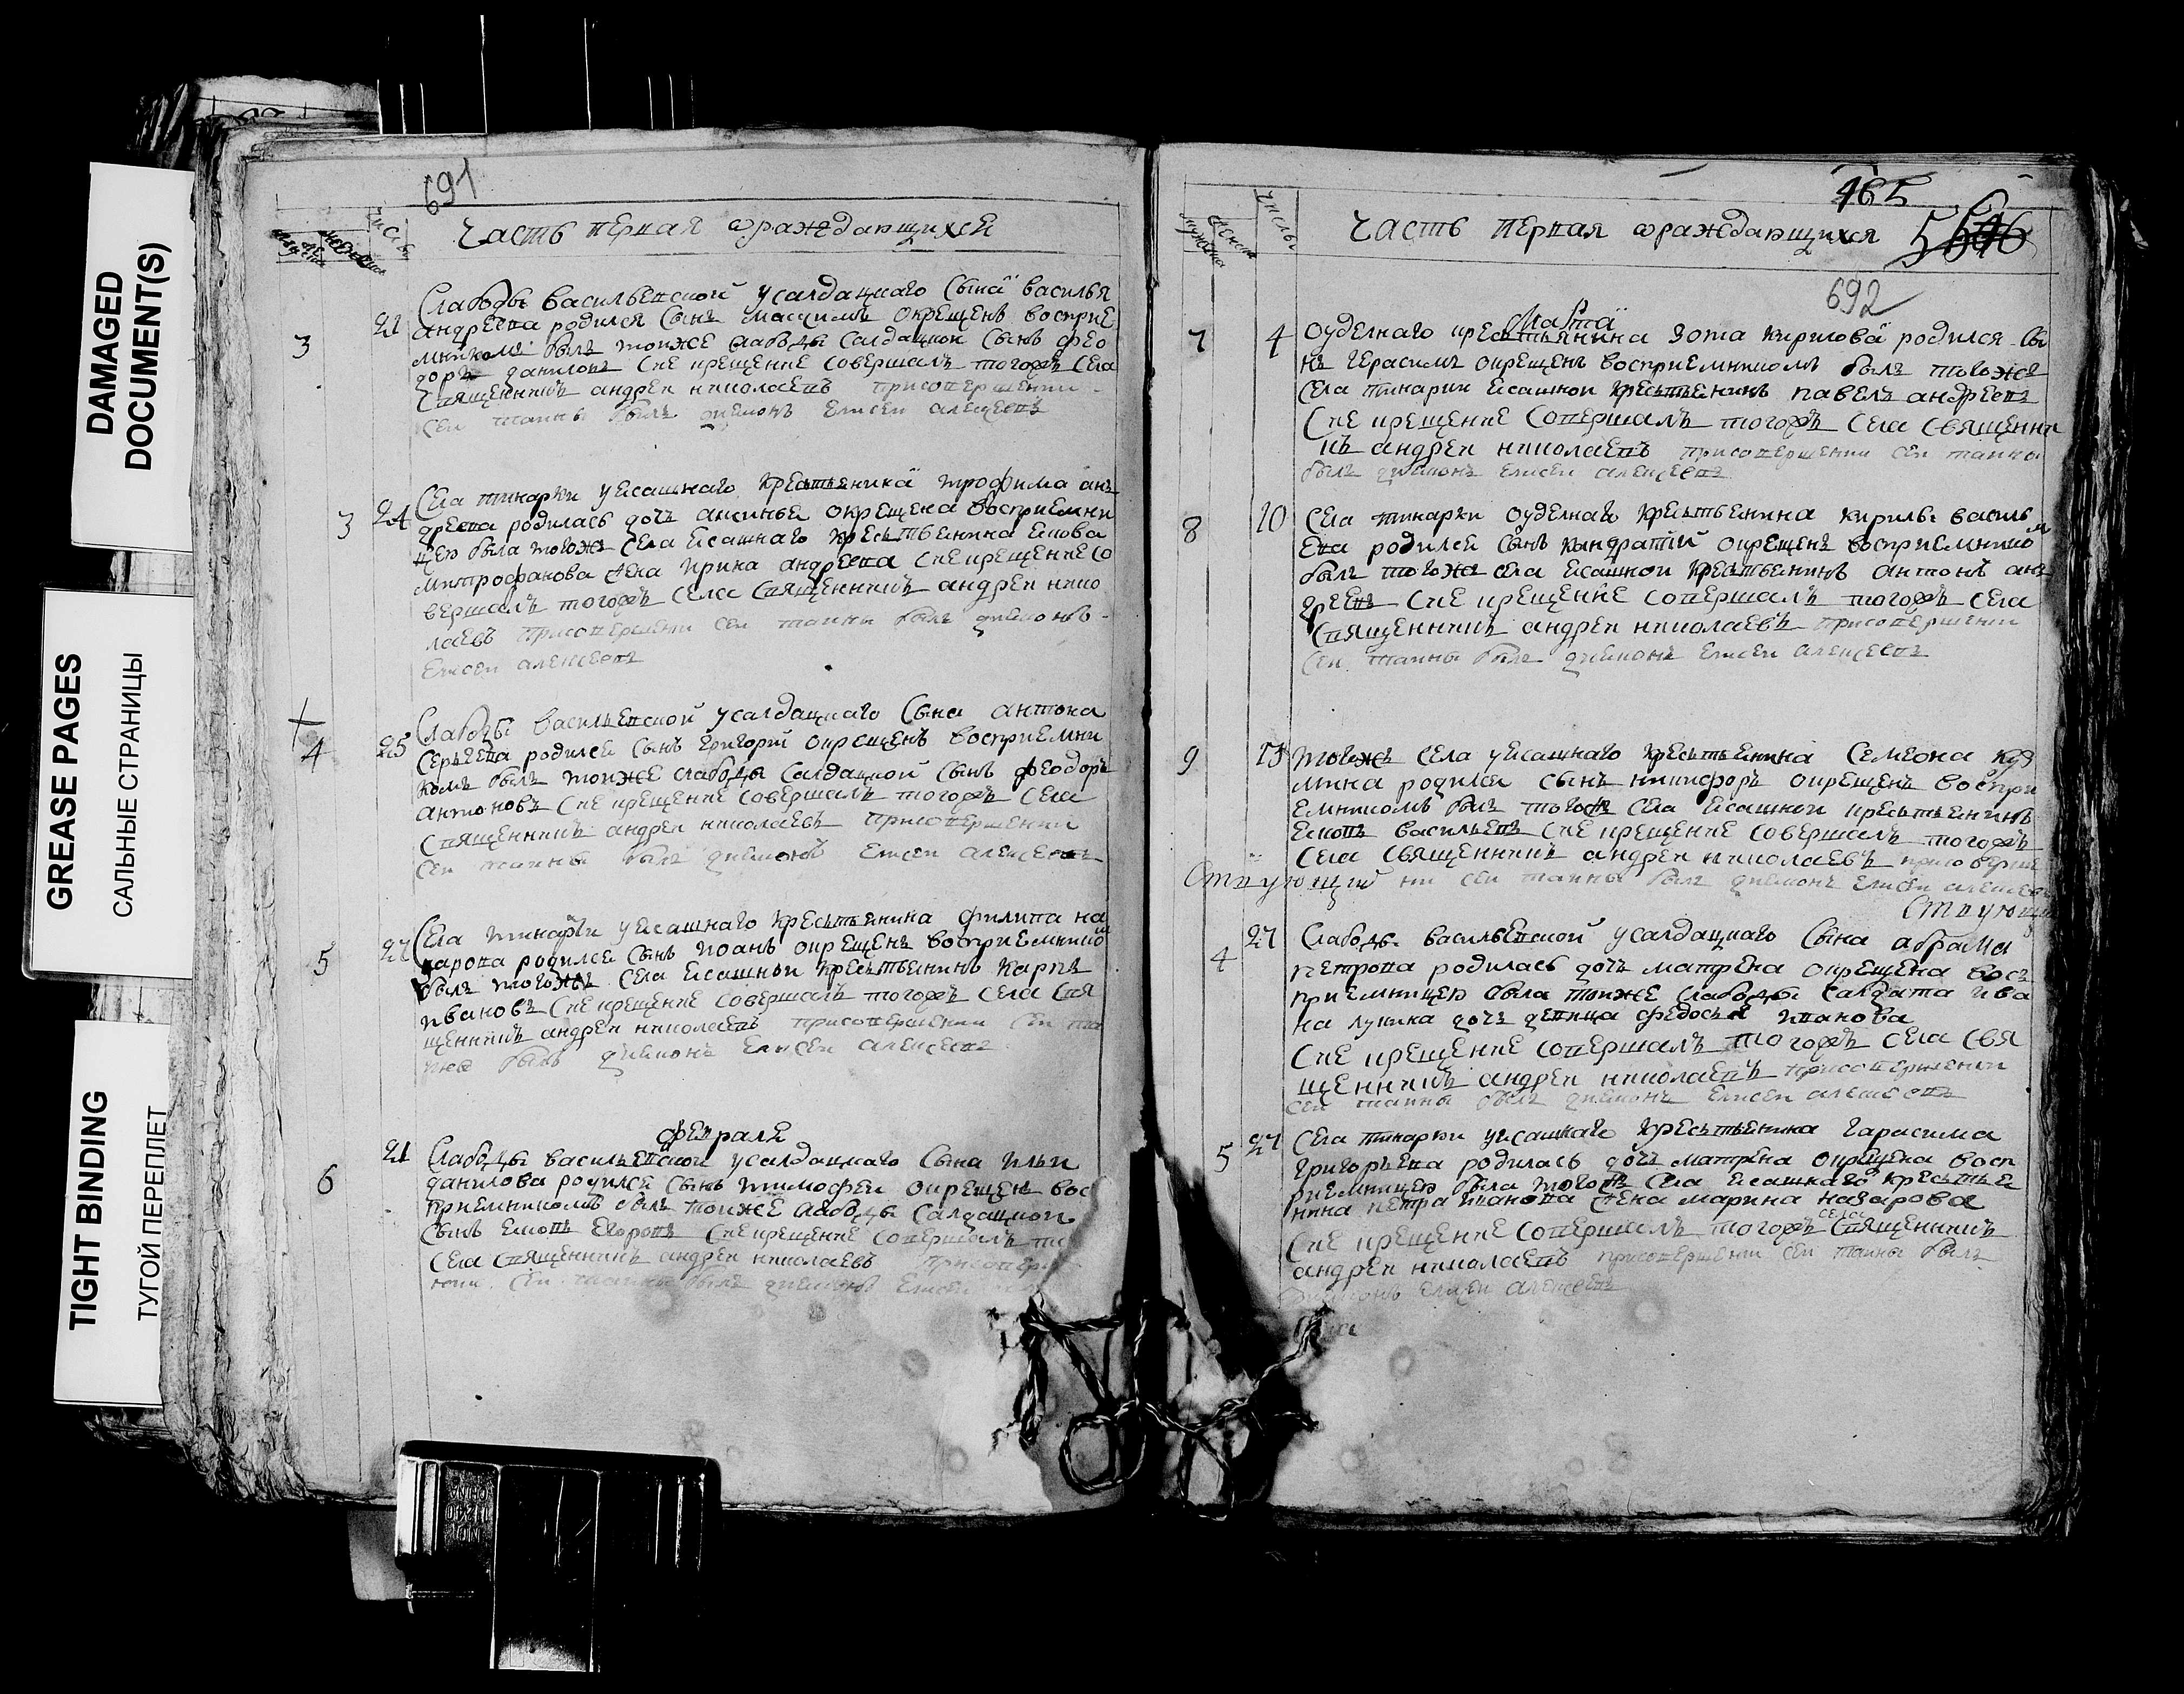 DAMAGED
DOCUMENT(S)
GREASE PAGES
САЛЬНЫЕ СТРАНИЦЫ
TIGHT BINDING
ТУГОЙ ПЕРЕПЛЕТ
691
числы
Часть первая ораждающихся
3 22 Слабоды васильевской усалдацкаго сына василья
андреева родился сынъ максимъ окрещенъ восприе
мникомъ былъ тоиже слабоды салдацкои сынъ фео
доръ даниловъ сие крещение совершалъ тогожъ села
священникъ андреи николаевъ присовершении
сеи таины былъ дияконъ елисеи алексеевъ
3 24 Села тинарки уясашнаго крестьенина трофима ан
дреева родилась дочь аксинья окрещена восприемни
цею была тогожъ села ясашнаго крестьенина якова
митрофанова жена ирина андреева сие крещение со
вершалъ тогожъ села священникъ андреи нико
лаевъ присовершени сеи таины былъ дияконъ
елисеи алексеевъ
4 25 Слабоды васильевской усалдацкаго сына антона
сергеева родился сынъ григорий окрещенъ восприемни
комъ былъ тоиже слабоды салдацкой сынъ феодоръ
антоновъ сие крещение совершалъ тогожъ села
священникъ андреи николаевъ присовершении
сеи таины былъ дияконъ елисеи алексеевъ
5 27 Села тинарки уясашнаго крестьенина филипа на
зарова родился сынъ иоанъ окрещенъ восприемникомъ
былъ тогожъ села ясашнои крестьенинъ карпъ
ивановъ сие крещение совершалъ тогожъ села свя
щенникъ андреи николаевъ присовершении сеи та
ины былъ дияконъ елисеи алексеевъ
февраля
6 21 Слабоды васильевской усалдацкаго сына ильи
данилова родился сынъ тимофеи окрещенъ вос
приемникомъ былъ тоиже слабоды салдацкои
сынъ яковъ егоровъ сие крещение совершалъ то
села священникъ андреи николаевъ присовер
шении сеи таины былъ дияконъ елисеи
465
числы
Часть первая ораждающихся
692
марта
7 4 оуделнаго крестьянина зота кирилова родился сы
нъ герасимъ окрещенъ восприемникомъ былъ тогоже
села тинарки ясашнои крестьенинъ павелъ андреевъ
сие крещение совершалъ тогожъ села священни
къ андреи николаевъ присовершении сеи таины
былъ дияконъ елисеи алексеевъ
8 10 Села тинарки оуделнаго крестьенина кирилы василь
ева родился сынъ кандратий окрещенъ восприемником
былъ тогоже села ясашнои крестьенинъ антонъ ан
дреевъ сие крещение совершалъ тогожъ села
священникъ андреи николаевъ присовершении
сеи таины былъ дияконъ елисеи алексеевъ
9 13 тогожъ села уясашнаго крестьенина семеона куз
мина родился сынъ никифоръ окрещенъ воспри
емникомъ былъ тогожъ села ясашнои крестьенинъ
яковъ васильевъ сие крещение совершалъ тогожъ
села священникъ андреи николаевъ присоверше
нии сеи таины былъ дияконъ елисеи алексеев
4 27 Слабоды васильевской усалдацкаго сына абрама
петрова родилась дочь матрена окрещена вос
приемницею была тоиже слабоды салдата ива
на лукина дочь девица федосья иванова
сие крещение совершалъ тогожъ села свя
щенникъ андреи николаевъ присовершении
сеи таины былъ дияконъ елисеи алексеевъ
5 27 Села тинарки уясашнаго крестьенина гарасима
григорьева родилась дочь матрена окрещена восп
риемницею была тогожъ села ясашнаго крестье
нина петра иванова жена марина назарова
сие крещение совершалъ тогожъ села священникъ
андреи николаевъ присовершении сеи таины былъ
дияконъ елисеи алексеевъ